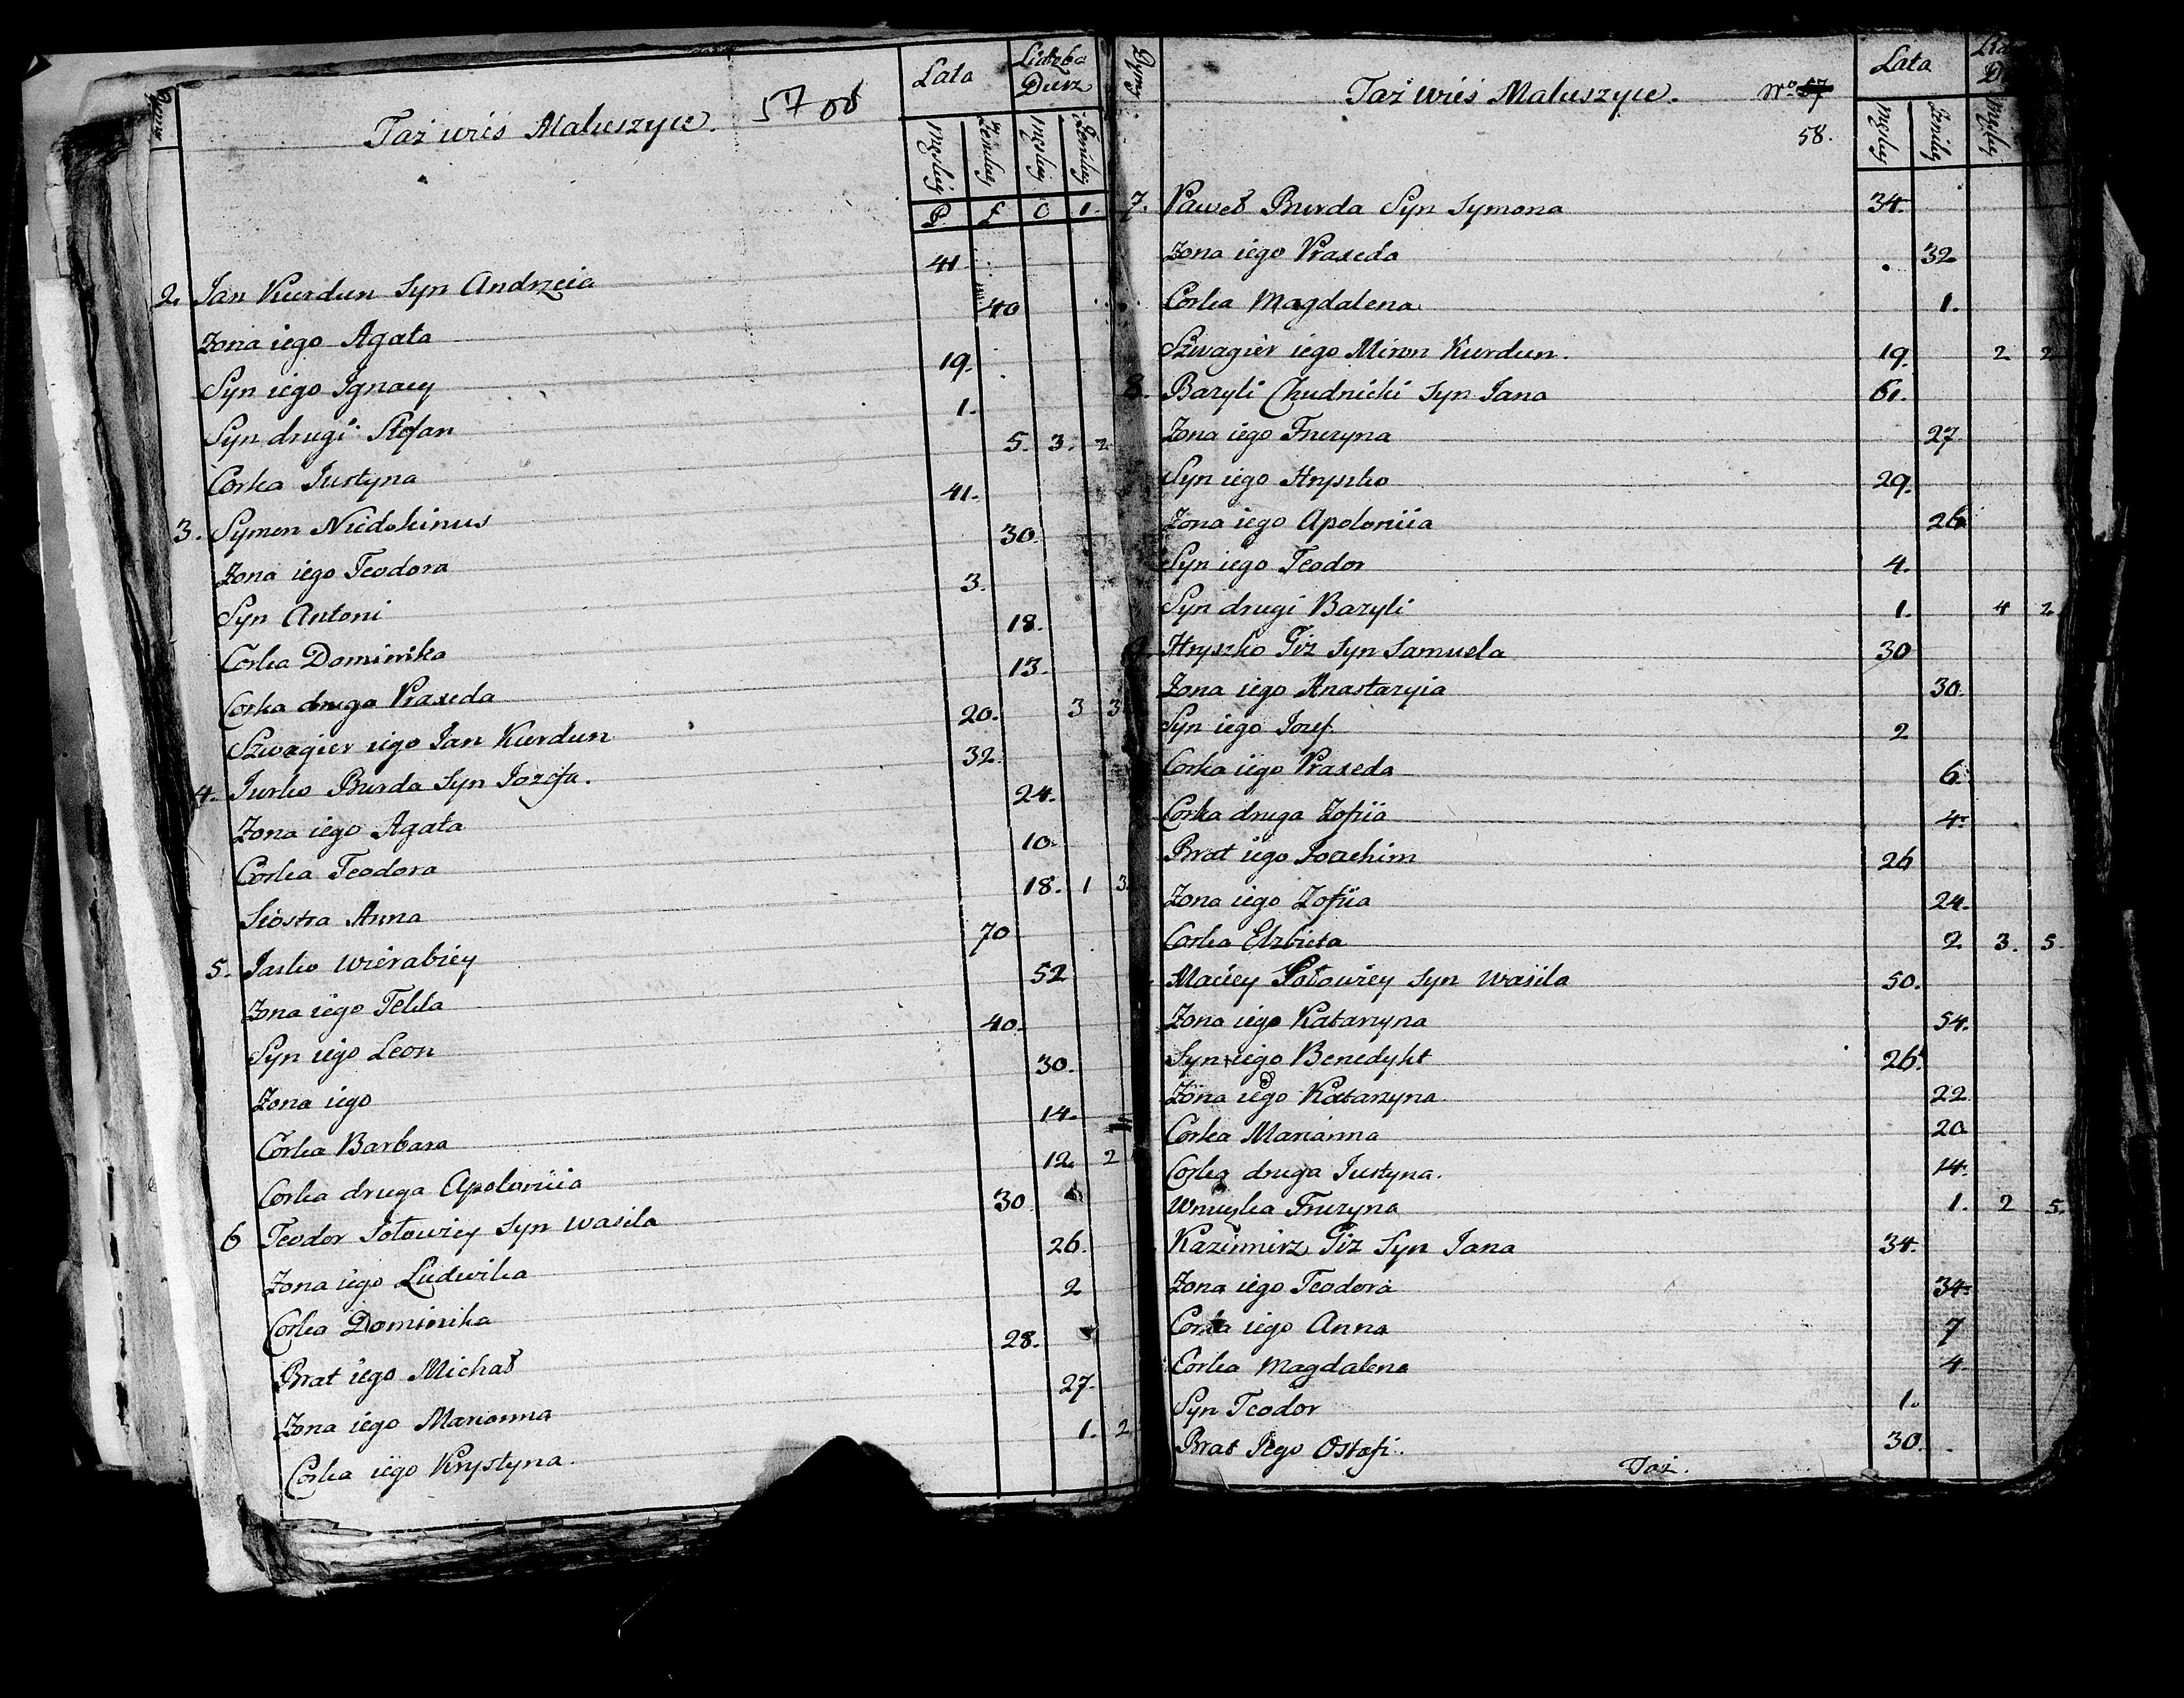 Dymy
Taż wieś Maluszyce. 57 об
Lata
Liczba Dusz
Męskiey
Żenskiey
Męskiey
Żenskiey
P. f O 1.
2. Jan Kurdun Syn Andrzeia 41
Żona iego Agata 40
Syn iego Ignacy 19.
Syn drugi Stefan 1.
Corka Justyna 5. 3. 2
3. Symon Niidokinus 41.
Żona iego Teodora 30.
Syn Antoni 3.
Corka Dominika 18.
Corka druga Praxeda 13.
Szwagier iego Jan Kurdun 20. 3 3
4. Jurko Burda Syn Jozefa. 32.
Żona iego Agata 24.
Corka Teodora 10.
Siostra Anna 18. 1 3.
5. Jasko Wierabiey 70
Żona iego Tekla 52
Syn iego Leon 40.
Żona iego 30.
Corka Barbara 14.
Corka druga Apoloniia 12. 2
6 Teodor Sołowiey Syn Wasila 30
Żona iego Ludwika 26.
Corka Dominika 2
Brat iego Michał 28.
Żona iego Marianna 27.
Corka iego Krystyna. 1. 2
Dymy
Taż wieś Maluszyce. No 57
58.
Lata
Męskiey
Żenskiey
Męskiey
7. Paweł Burda Syn Symona 34.
Żona iego Praxeda 32
Corka Magdalena 1.
Szwagier iego Miron Kurdun. 19. 2 2
8. Bazyli Chudnicki Syn Jana 61.
Żona iego Fruzyna 27
Syn iego Hryszko 29.
Żona iego Apoloniia 26
Syn iego Teodor 4.
Syn drugi Bazyli 1. 4 2
9. Hryszko Giz Syn Samuela 30
Żona iego Anastazyia 30.
Syn iego Jozef. 2
Corka iego Praxeda 6.
Corka druga Zofiia 4.
Brat iego Joachim 26
Żona iego Zofiia 24.
Corka Elzbieta 2 3. 5
Maciey Sołowiey Syn Wasila 50.
Żona iego Katarzyna 54.
Syn iego Benedykt 26.
Żona iego Katarzyna 22
Corka Marianna 20
Corka druga Justyna. 14.
Wnuczka Fruzyna 1. 2 5.
Kazimierz Giz Syn Jana 34.
Żona iego Teodora 34.
Corka iego Anna 7
Corka Magdalena 4.
Syn Teodor 1.
Brat Jego Ostafi. 30.
Taż.